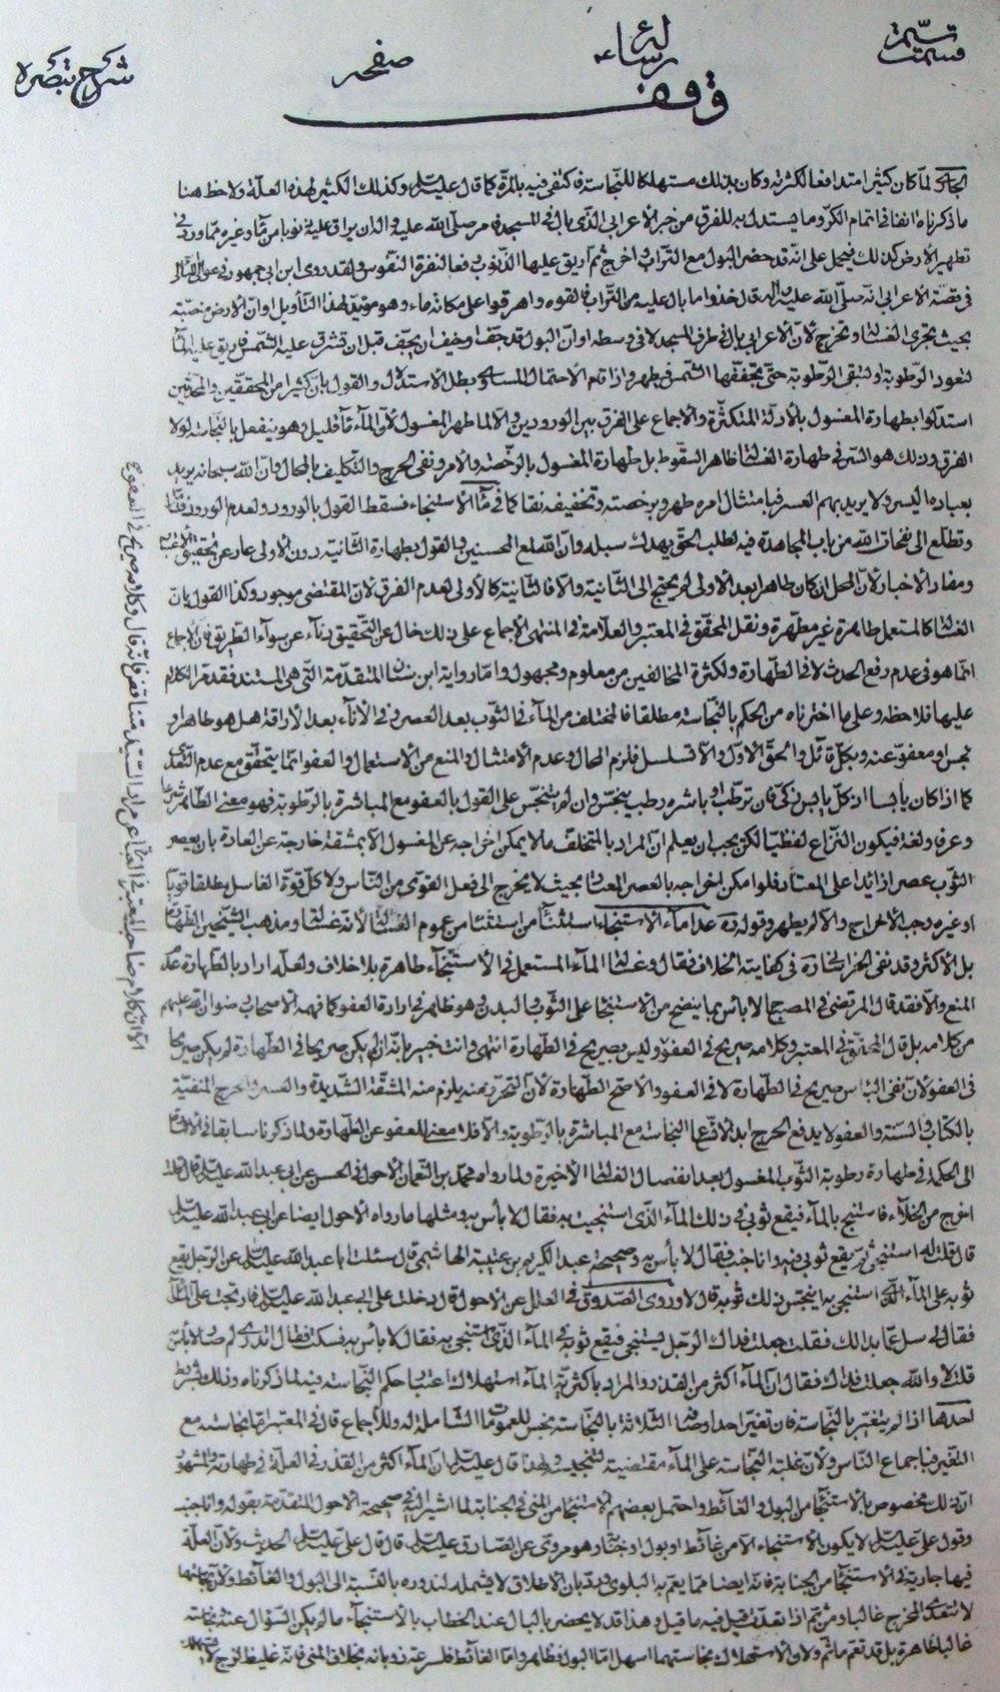 قسمت
رسائله
صفحه
شرح تبصره
وقف
لما كان كثيرا متدافعا لكثرته وكان بذلك مستهلكا للنجاسة فاكتفى فيه بالمرة كما قال عليه السلام وكذلك الكثير لهذه العلة ولاحظ هنا
ما ذكرناه انفا في اتمام الكر وما يستدل به للفرق من خبر الاعرابي الذي بال في المسجد فامر صلى الله عليه واله ان يراق عليه ذنوبا من ماء وغيره مما ورد في
تطهير الارض كذلك فيحمل على انه قد حضر البول مع التراب واخرج ثم اريق عليها الذنوب دفعا لنفرة النفوس ولقد روى ابن ابي جمهور في
في قصة الاعرابي انه صلى الله عليه واله قال خذوا ما بال عليه من التراب فالقوه واهرقوا على مكانه ماء وهو مؤيد لهذا التأويل او ان الارض منصبة
بحيث تجري الغسالة وتخرج لان الاعرابي بال في طرف المسجد لا في وسطه او ان البول قد جف او خيف ان يجف قبل ان تشرق عليه الشمس فاريق عليه الماء
لتعود الرطوبة او لتبقى الرطوبة حتى تجففها الشمس فيطهر واذا قام الاحتمال المساوي بطل الاستدلال والقول بان كثيرا من المحققين والمحدثين
استدلوا بطهارة المغسول بالادلة المتكثرة والاجماع على الفرق بين الورودين والا لما طهر المغسول لان الماء قليل وهو ينفعل بالنجاسة لولا
الفرق وذلك هو السر في طهارة الغسالة ظاهر السقوط بل طهارة المغسول بالرخصة والامر ونفي الحرج والتكليف بالمحال وان الله سبحانه يريد
بعباده اليسر ولا يريد بهم العسر فبامتثال امره طهر وبرخصته وتخفيفه نقا كما في ماء الاستنجاء فسقط القول بالورود ولعدم الورود
وتطلع الى نفحات الله من باب المجاهدة فيه لطلب الحق يهدك سبله وان الله لمع المحسنين والقول بطهارة الثانية دون الاولى عار عن تحقيق
ومفاد الاخبار لان المحل ان كان طاهرا بعد الاولى لم يحتج الى الثانية والا فالثانية كالاولى لعدم الفرق لان المقتضي موجود وكذا القول بان
الغسالة كالمستعمل طاهرة غير مطهرة ونقل المحقق في المعتبر والعلامة في المنتهى الاجماع على ذلك خال عن التحقيق ناء عن سواء الطريق فان الاجماع
انما هو في عدم رفع الحدث لا في الطهارة ولكثرة المخالفين من معلوم ومجهول واما رواية ابن سنان المتقدمة التي هي المستند فقد مر الكلام
عليها فلاحظه وعلى ما اخترناه من الحكم بالنجاسة مطلقا فالمختلف من الماء في الثوب بعد العصر وفي الاناء بعد الاراقة هل هو طاهر او
نجس او معفو عنه وبكل قائل والحق الاول والا تسلسل فلزم المحال وعدم الامتثال والمنع من الاستعمال والعفو انما يتحقق مع عدم التعدي
كما اذا كان يابسا اذ كل يابس زكي فان ترطب او باشره رطب ينجس وان لم ينجس على القول بالعفو مع المباشرة بالرطوبة فهو معنى الطاهر
وعرفا ولغة فيكون النزاع لفظيا لكن يجب ان يعلم ان المراد بالمتخلف ما لا يمكن اخراجه عن المغسول الا بمشقة خارجة عن العادة بان يعصر
الثوب عصرا زائدا على المعتاد فلو امكن اخراجه بالعصر المعتاد بحيث لا يخرج الى فعل القوي من الناس ولا كل قوة الغاسل مطلقا قويا
او غيره وجب الاخراج والا لم يطهر وقوله ره عدا ماء الاستنجاء استثناء من عموم الغسالة لانه غسالة ومذهب الشيخين الطهارة
بل الاكثر وقد نفى الخراساني ره في كفايته الخلاف فقال وغسالة الماء المستعمل في الاستنجاء طاهرة بلا خلاف ولعله اراد بالطهارة عدم
المنع والا فقد قال المرتضى في المصباح لا بأس بما ينضح من الاستنجاء على الثوب والبدن وهو ظاهر في ارادة العفو كما فهمه الاصحاب رضوان الله عليهم
من كلامه بل قال المحقق في المعتبر وكلامه صريح في العفو وليس بصريح في الطهارة انتهى وانت خبير بانه ان لم يكن صريحا في الطهارة لم يكن صريحا
في العفو لان نفي البأس صريح في الطهارة لا في العفو والاصح الطهارة لان التحرز منه يلزم منه المشقة الشديدة والعسر والحرج المنفية
بالكتاب والسنة والعفو لا يدفع الحرج ابدا لا نجاسة مع المباشرة بالرطوبة والا فلا معنى للعفو عن الطهارة ولما ذكرنا سابقا
الى الحكمة في طهارة رطوبة الثوب المغسول بعد انفصال الغسالة الاخيرة ولما رواه محمد بن النعمان الاحول في الحسن عن ابي عبد الله عليه السلام قال قلت
اخرج من الخلاء فاستنجي بالماء فيقع ثوبي في ذلك الماء الذي استنجيت به فقال لا بأس به ومثلها ما رواه الاحول ايضا عن ابي عبد الله عليه السلام
قال قلت له استنجي ثم يقع ثوبي فيه وانا جنب فقال لا بأس به وصحيحة عبد الكريم بن عتيبة الهاشمي قال سئلت ابا عبد الله عليه السلام عن الرجل يقع
ثوبه على الماء الذي استنجى به اينجس ذلك ثوبه قال لا وروى الصدوق في العلل عن الاحول قال دخلت على ابي عبد الله عليه السلام
فقال لي سل عما بدا لك فقلت جعلت فداك الرجل يستنجي فيقع ثوبه في الماء الذي يستنجي به فقال لا بأس به فسكت فقال اتدري لم صار لا بأس
قلت لا والله جعلت فداك فقال ان الماء اكثر من القذر والمراد باكثرية الماء استهلاك اعتبار حكم النجاسة فيه لما ذكرناه وذلك بشروط
احدها اذا لم يتغير بالنجاسة فان تغير احد اوصافه الثلاثة بالنجاسة نجس للعمومات الشاملة له وللاجماع قال في المعتبر اما نجاسته مع
التغير فباجماع الناس ولان غلبة النجاسة على الماء مقتضية لتنجيسه ولهذا قال عليه السلام ان الماء اكثر من القذر في العلة في طهارته والمشهور
ان ذلك مخصوص بالاستنجاء من البول والغائط واحتمل بعضهم الاستنجاء من المني في الجنابة لما اشير اليه في صحيحة الاحول المتقدمة بقوله وانا جنب
وقول علي عليه السلام لا يكون الاستنجاء الا من غائط او بول او جنابة وهو مروي عن الصادق عليه السلام قال قال علي عليه السلام الحديث ولان العلة
فيها جارية في الاستنجاء من الجنابة فانه ايضا مما يعم به البلوى ورد بان الاطلاق لا يشمله لندوره بالنسبة الى البول والغائط ولان
لا تتعدى المخرج غالبا ومن ثم اذا تعدت قيل فيه ما قيل وهذا قد لا يحضر بالبال عند الخطاب بالاستنجاء ما لم يكن السؤال عنه نجاسته
غالبا ظاهرة بل قد تعم ما ثم ولان الاستهلاك بنجاستهما اسهل اما البول فظاهر واما الغائط فلسرعة ذوبانه بخلاف المني فانه غليظ لزج